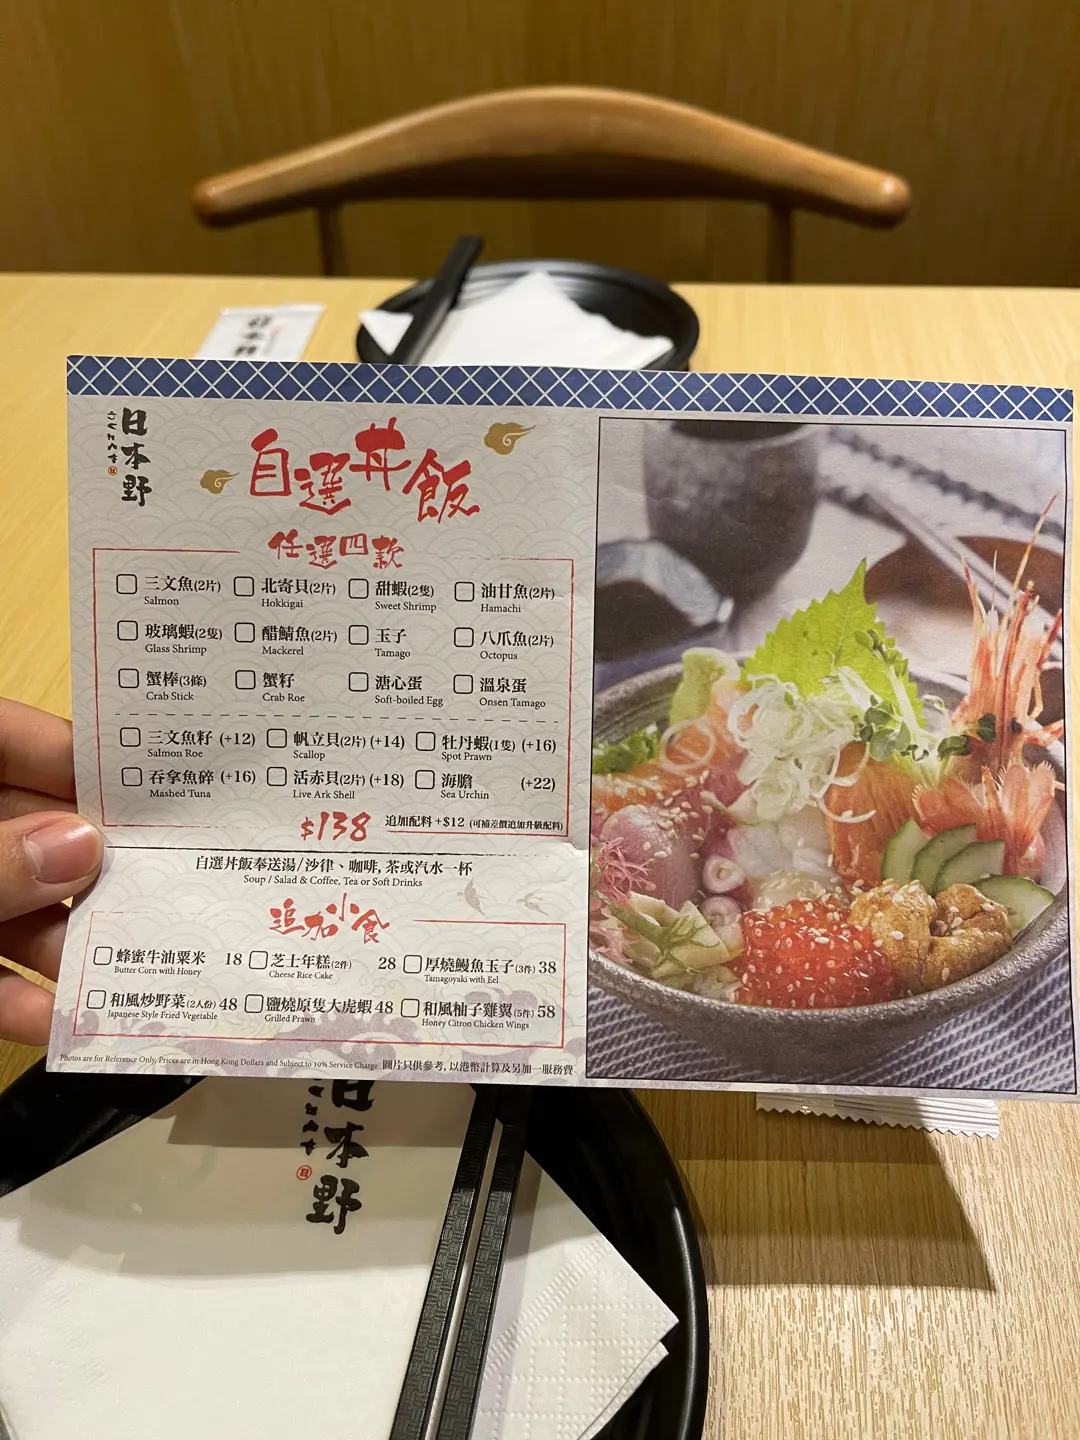 日本野
自選丼飯
任選四款
三文魚(2片) 北寄貝(2片) 甜蝦(2隻) 油甘魚(2片)
Salmon Hokkigai Sweet Shrimp Hamachi
玻璃蝦(2隻) 醋鯖魚(2片) 玉子 八爪魚(2片)
Glass Shrimp Mackerel Tamago Octopus
蟹棒(3條) 蟹籽 溏心蛋 溫泉蛋
Crab Stick Crab Roe Soft-boiled Egg Onsen Tamago
三文魚籽 (+12) 帆立貝(2片) (+14) 牡丹蝦(1隻) (+16)
Salmon Roe Scallop Spot Prawn
吞拿魚碎 (+16) 活赤貝(2片) (+18) 海膽 (+22)
Mashed Tuna Live Ark Shell Sea Urchin
$138 追加配料 +$12 (可補差價追加升級配料)
自選丼飯奉送湯/沙律、咖啡, 茶或汽水一杯
Soup / Salad & Coffee, Tea or Soft Drinks
追加小食
蜂蜜牛油粟米 18 芝士年糕(2件) 28 厚燒鰻魚玉子(3件) 38
Butter Corn with Honey Cheese Rice Cake Tamagoyaki with Eel
和風炒野菜(2人份) 48 鹽燒原隻大虎蝦 48 和風柚子雞翼(5件) 58
Japanese Style Fried Vegetable Grilled Prawn Honey Citron Chicken Wings
Photos are for Reference Only, Prices are in Hong Kong Dollars and Subject to 10% Service Charge. 圖片只供參考, 以港幣計算及另加一服務費
日本野